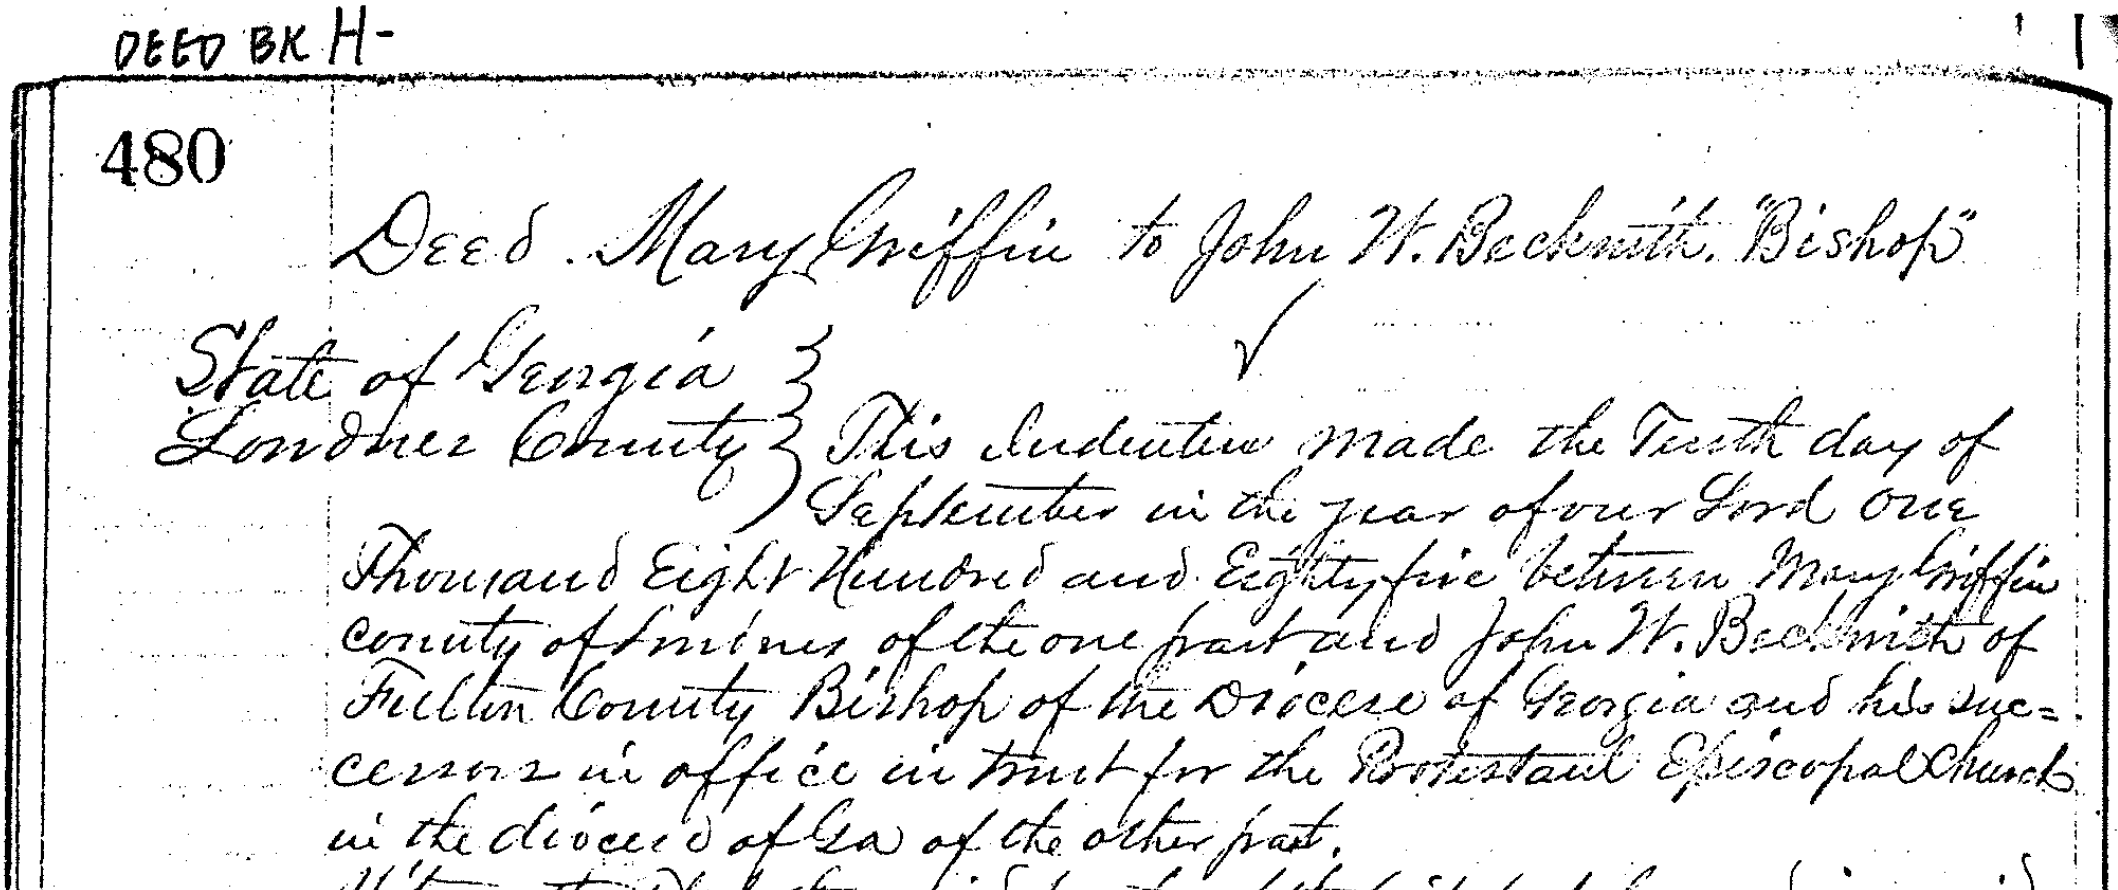 DEED BK H-
480
Deed. Mary Griffin to John W. Beckwith. "Bishop"
State of Georgia
Lowndes County } This Indenture made the Tenth day of
September in the year of our Lord One
Thousand Eight Hundred and Eighty five between Mary Griffin
county of Lowndes of the one part and John W. Beckwith of
Fulton County Bishop of the Diocese of Georgia and his suc=
cessors in office in trust for the Protestant Episcopal Church
in the diocese of Ga of the other part.